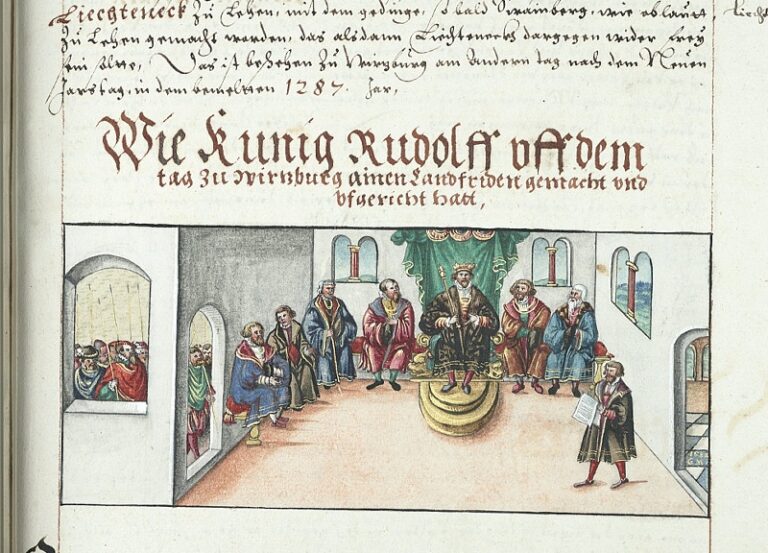 Liechteneck Zu Lehen, mit dem gedinge, so bald Strainberg, wie oblautt,
Zu Lehen gemacht worden, das alsdann Liechteneck dargegen wider frey
sein solte, Das ist beschehen Zu Wirzburg am Andern tag nach dem Neuen
Jarstag, in dem bemelten 1287. Jar,
Wie Kunig Rudolff uff dem
tag Zu Wirtzburg ainen Landfriden gemacht vnd
vfgericht hatt,